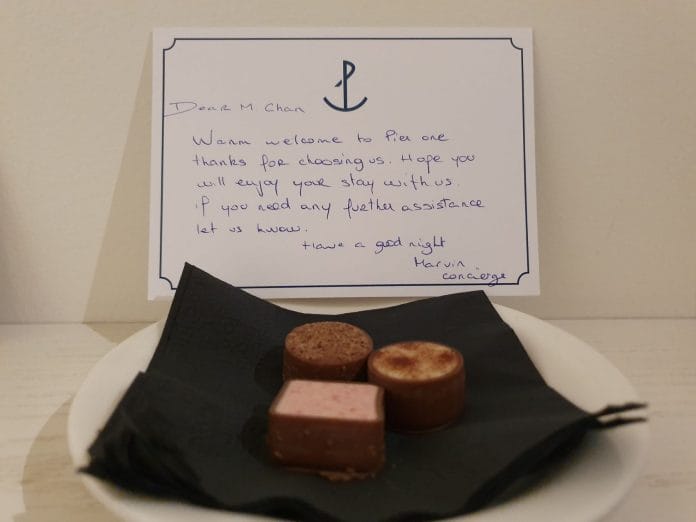 Dear M Chan
Warm welcome to Pier one
thanks for choosing us. Hope you
will enjoy your stay with us.
if you need any further assistance
let us know.
Have a good night
Marvin
concierge